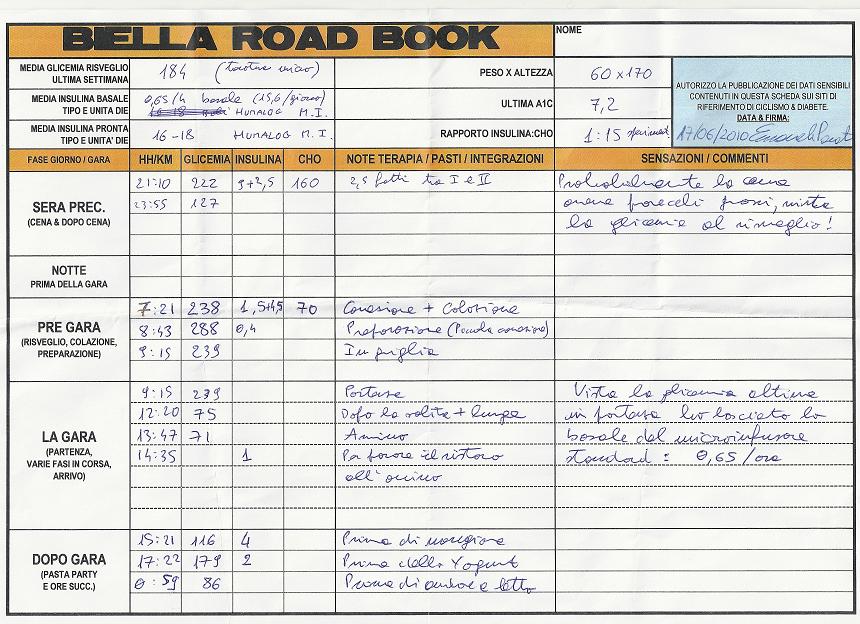 BIELLA ROAD BOOK
NOME
MEDIA GLICEMIA RISVEGLIO ULTIMA SETTIMANA 184 PESO X ALTEZZA 60 x 170
MEDIA INSULINA BASALE TIPO E UNITA DIE 0,65/h basale (15,6/giorno) HUMALOG M.I. ULTIMA A1C 7,2
MEDIA INSULINA PRONTA TIPO E UNITA' DIE 16-18 HUMALOG M.I. RAPPORTO INSULINA:CHO 1:15
AUTORIZZO LA PUBBLICAZIONE DEI DATI SENSIBILI
CONTENUTI IN QUESTA SCHEDA SUI SITI DI
RIFERIMENTO DI CICLISMO & DIABETE.
DATA & FIRMA:
17/06/2010
FASE GIORNO / GARA HH/KM GLICEMIA INSULINA CHO NOTE TERAPIA / PASTI / INTEGRAZIONI SENSAZIONI / COMMENTI
SERA PREC.
(CENA & DOPO CENA)
21:10 222 9+2,5 160 2,5 fatti tra I e II Probabilmente la cena
23:55 127 aveva parecchi grassi, vista
la glicemia al risveglio!
NOTTE
PRIMA DELLA GARA
PRE GARA
(RISVEGLIO, COLAZIONE,
PREPARAZIONE)
7:21 238 1,5+4,5 70 Correzione + Colazione
8:43 288 0,4 Preparazione (Piccola correzione)
9:15 239 In griglia
LA GARA
(PARTENZA,
VARIE FASI IN CORSA,
ARRIVO)
9:15 239 Partenza Vista la glicemia altina
12:20 75 Dopo la salita + lunga in partenza ho lasciato la
13:47 71 Arrivo basale del microinfusore
14:35 1 Per favore il ristoro standard : 0,65/ora
all'arrivo
DOPO GARA
(PASTA PARTY
E ORE SUCC.)
15:21 116 4 Prima di mangiare
17:22 179 2 Prima dello Yogurt
0:59 86 Prima di andare a letto